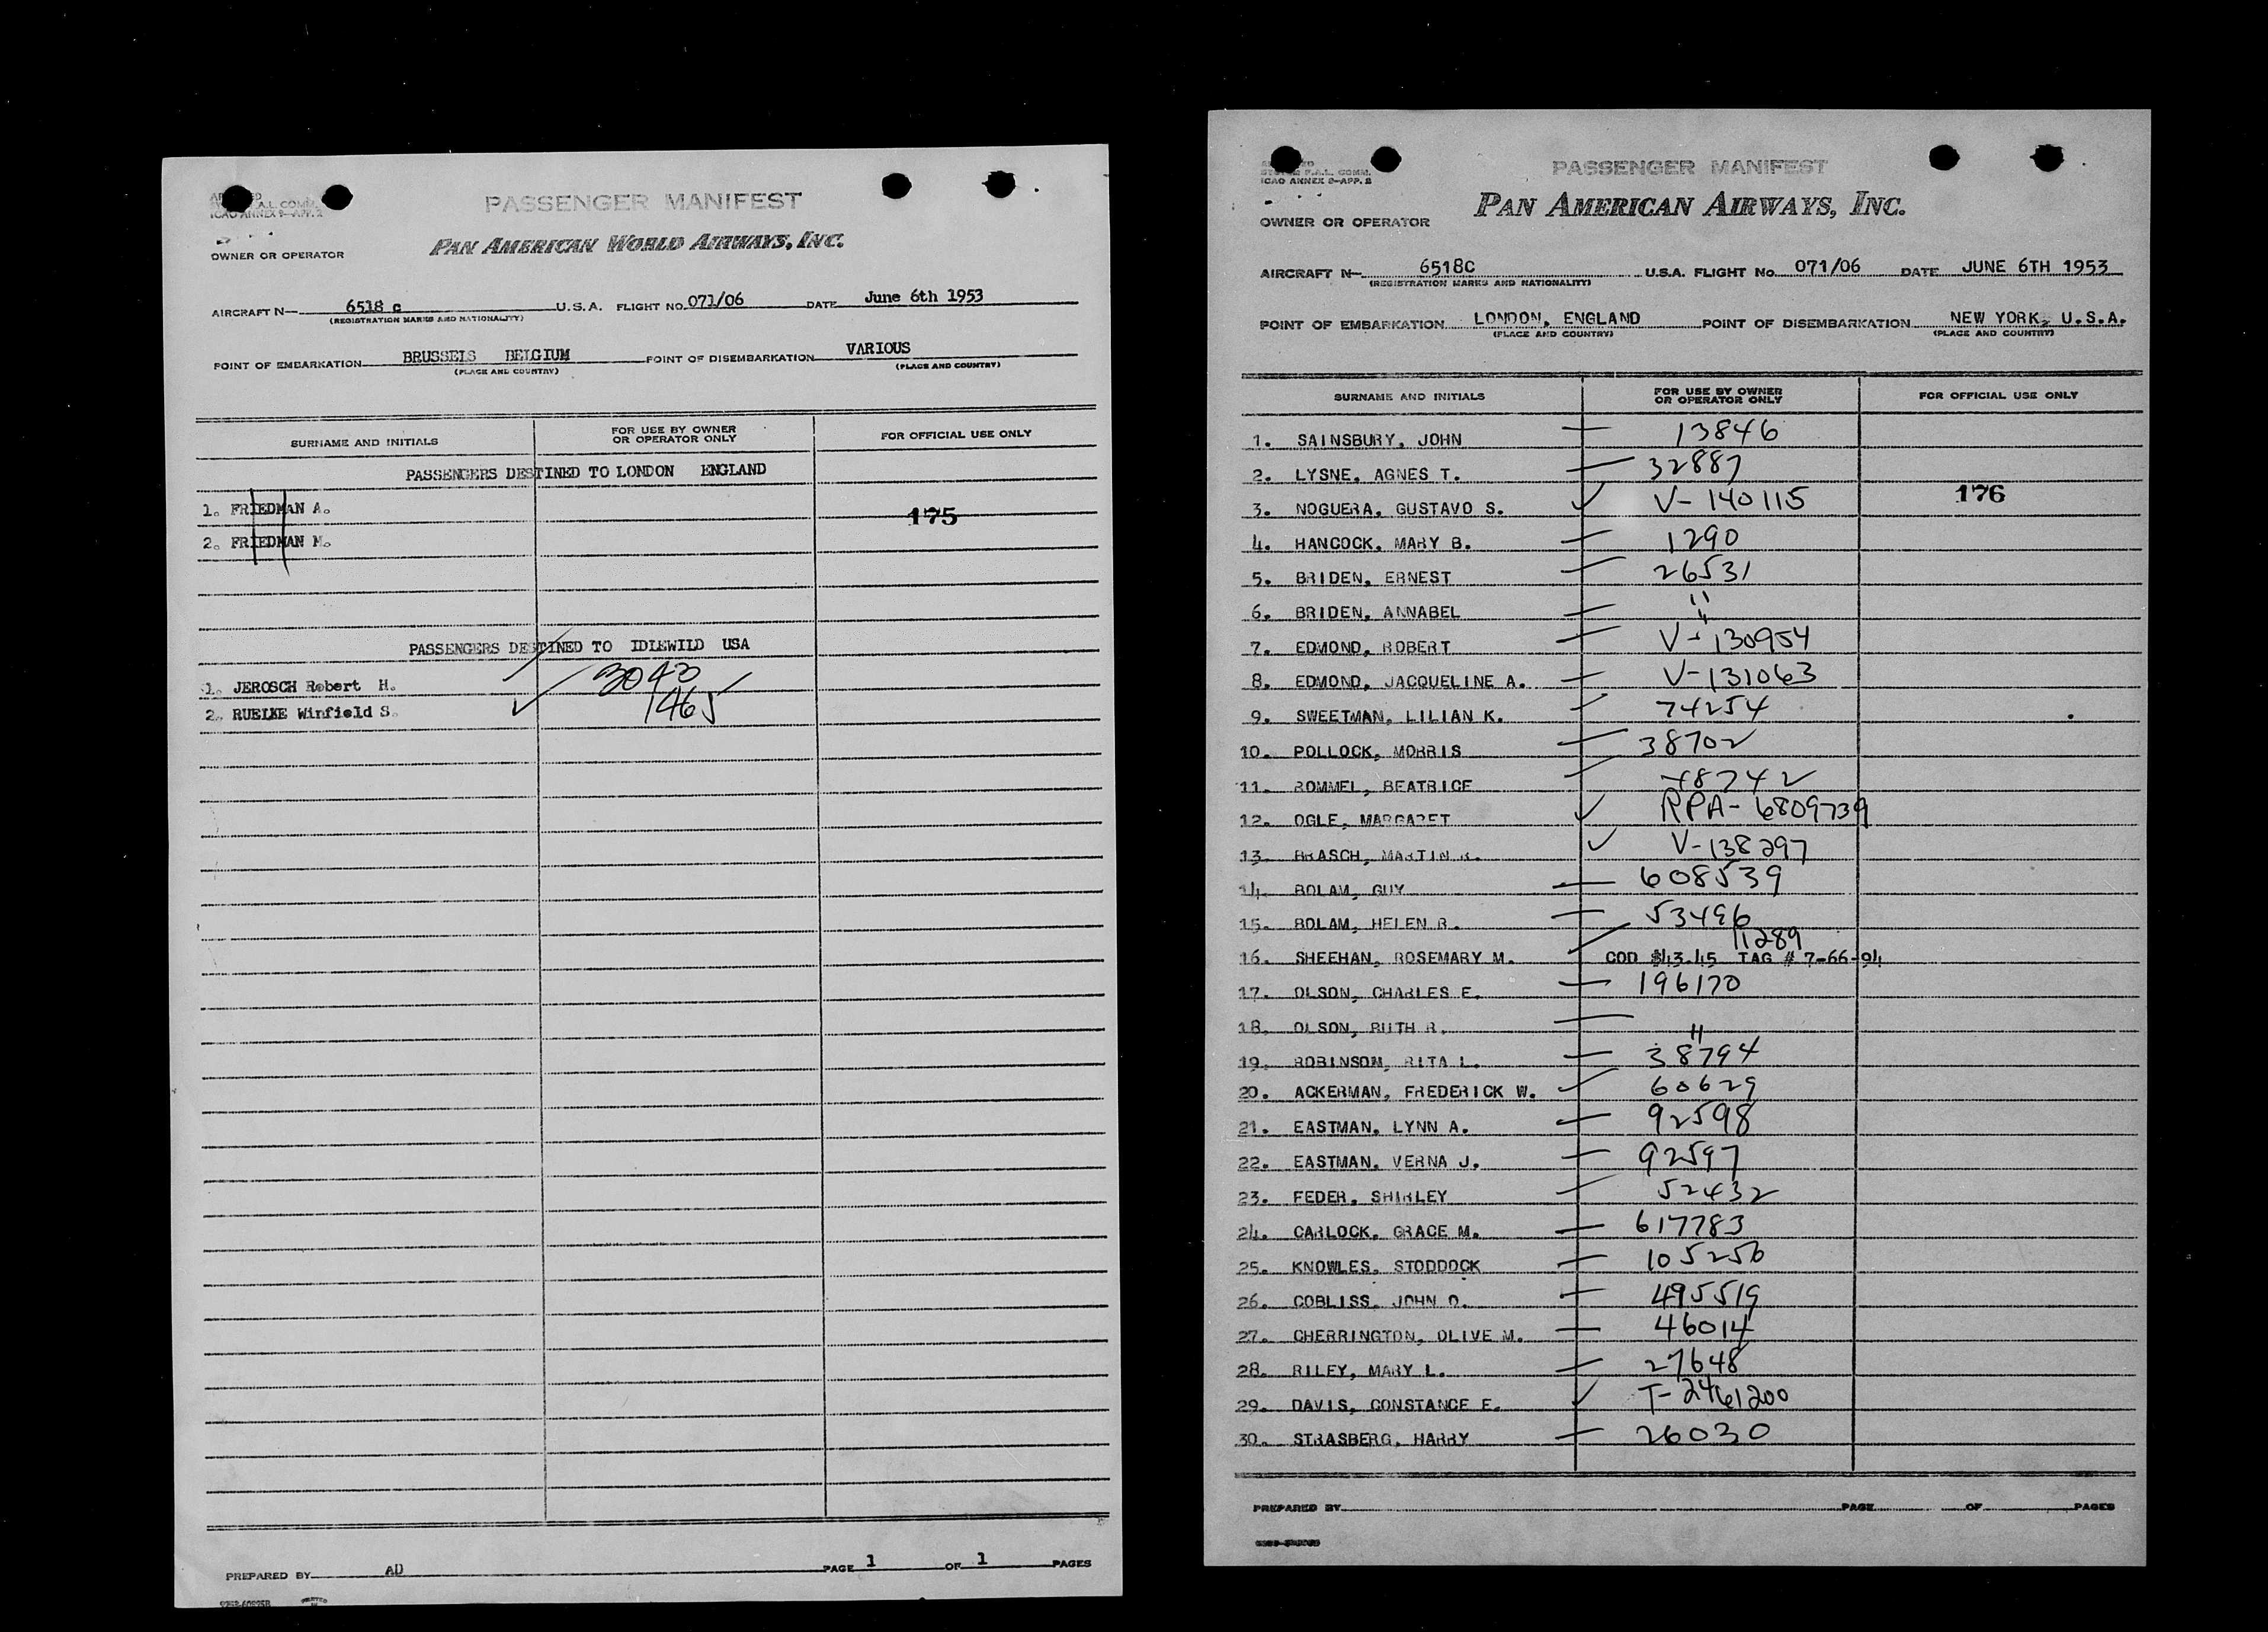 PASSENGER MANIFEST
ICAO ANNEX 9-APP. 2
OWNER OR OPERATOR
PAN AMERICAN WORLD AIRWAYS, INC.
AIRCRAFT N- 6518 c U.S.A. FLIGHT NO. 071/06 DATE June 6th 1953
(REGISTRATION MARKS AND NATIONALITY)
POINT OF EMBARKATION BRUSSELS BELGIUM POINT OF DISEMBARKATION VARIOUS
(PLACE AND COUNTRY) (PLACE AND COUNTRY)
SURNAME AND INITIALS FOR USE BY OWNER OR OPERATOR ONLY FOR OFFICIAL USE ONLY
PASSENGERS DESTINED TO LONDON ENGLAND
1. FRIEDMAN A.
175
2. FRIEDMAN M.
PASSENGERS DESTINED TO IDLEWILD USA
1. JEROSCH Robert H. 3040
2. RUELKE Winfield S. 1465
PREPARED BY AD PAGE 1 OF 1 PAGES
PASSENGER MANIFEST
P.A.L. COMM.
ICAO ANNEX 9-APP. 2
PAN AMERICAN AIRWAYS, INC.
OWNER OR OPERATOR
AIRCRAFT N- 6518C U.S.A. FLIGHT No. 071/06 DATE JUNE 6TH 1953
(REGISTRATION MARKS AND NATIONALITY)
POINT OF EMBARKATION LONDON, ENGLAND POINT OF DISEMBARKATION NEW YORK, U.S.A.
(PLACE AND COUNTRY) (PLACE AND COUNTRY)
SURNAME AND INITIALS FOR USE BY OWNER OR OPERATOR ONLY FOR OFFICIAL USE ONLY
1. SAINSBURY, JOHN 13846
2. LYSNE, AGNES T. 32887
3. NOGUERA, GUSTAVO S. V-140115 176
4. HANCOCK, MARY B. 1290
5. BRIDEN, ERNEST 26531
6. BRIDEN, ANNABEL "
7. EDMOND, ROBERT V-130954
8. EDMOND, JACQUELINE A. V-131063
9. SWEETMAN, LILIAN K. 74254
10. POLLOCK, MORRIS 38702
11. ROMMEL, BEATRICE 48742
12. OGLE, MARGARET RPA-6809739
13. BRASCH, MARTIN R. V-138297
14. BOLAM, GUY 608539
15. BOLAM, HELEN R. 53496
11289
16. SHEEHAN, ROSEMARY M. COD $43.45 TAG # 7-66-94
17. OLSON, CHARLES E. 196170
18. OLSON, RUTH R. "
19. ROBINSON, RITA L. 38794
20. ACKERMAN, FREDERICK W. 60629
21. EASTMAN, LYNN A. 92598
22. EASTMAN, VERNA J. 92597
23. FEDER, SHIRLEY 52432
24. CARLOCK, GRACE M. 617783
25. KNOWLES, STODDOCK 105256
26. COBLISS, JOHN O. 495519
27. CHERRINGTON, OLIVE M. 46014
28. RILEY, MARY L. 27648
29. DAVIS, CONSTANCE E. T-2461200
30. STRASBERG, HARRY 26030
PREPARED BY PAGE OF PAGES